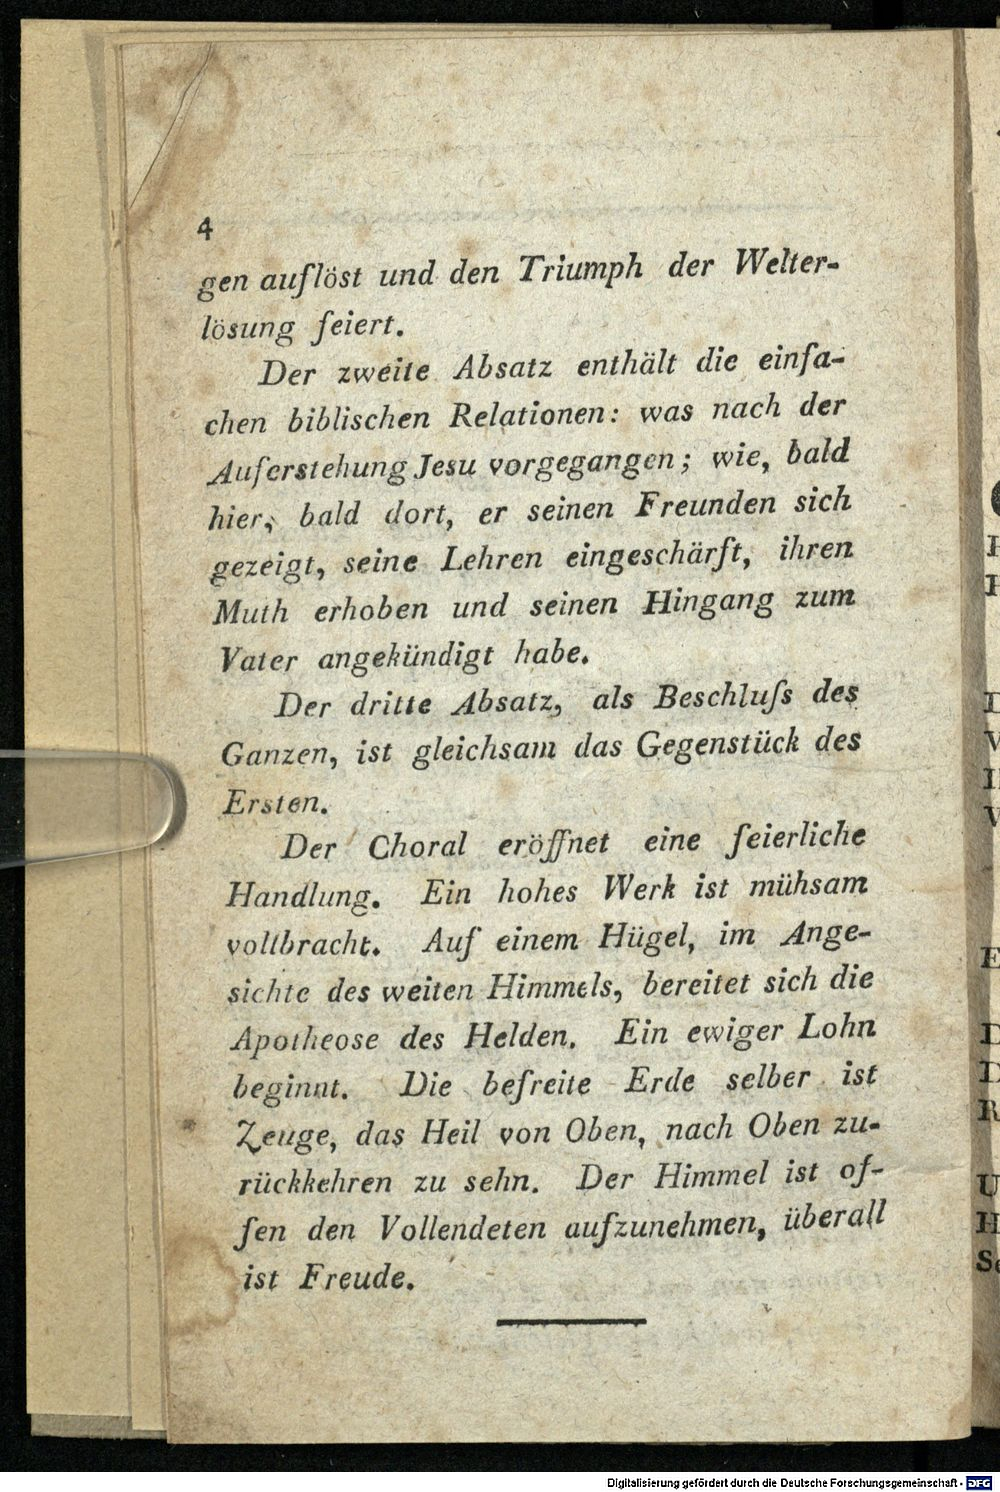 4
gen auflöst und den Triumph der Welter-
lösung feiert.
Der zweite Absatz enthält die einfa-
chen biblischen Relationen: was nach der
Auferstehung Jesu vorgegangen; wie, bald
hier, bald dort, er seinen Freunden sich
gezeigt, seine Lehren eingeschärft, ihren
Muth erhoben und seinen Hingang zum
Vater angekündigt habe.
Der dritte Absatz, als Beschluſs des
Ganzen, ist gleichsam das Gegenstück des
Ersten.
Der Choral eröffnet eine feierliche
Handlung. Ein hohes Werk ist mühsam
vollbracht. Auf einem Hügel, im Ange-
sichte des weiten Himmels, bereitet sich die
Apotheose des Helden. Ein ewiger Lohn
beginnt. Die befreite Erde selber ist
Zeuge, das Heil von Oben, nach Oben zu-
rückkehren zu sehn. Der Himmel ist of-
fen den Vollendeten aufzunehmen, überall
ist Freude.
Digitalisierung gefördert durch die Deutsche Forschungsgemeinschaft - DFG